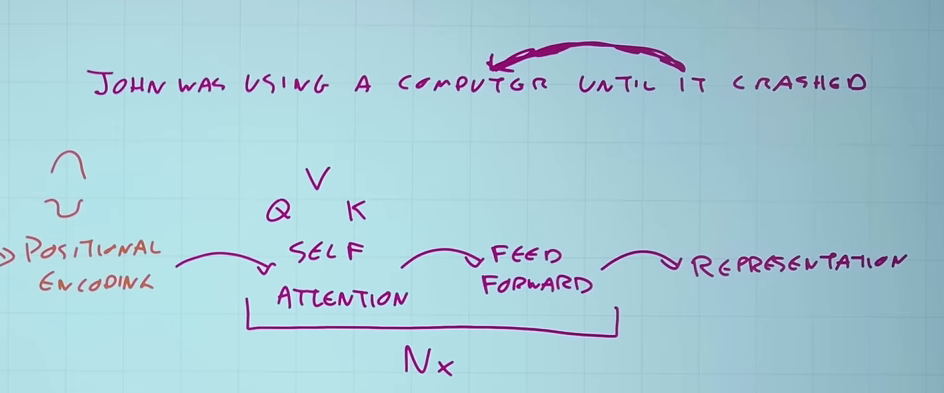 JOHN WAS USING A COMPUTER UNTIL IT CRASHED
V
Q K
POSITIONAL ENCODING
SELF ATTENTION
FEED FORWARD
REPRESENTATION
Nx